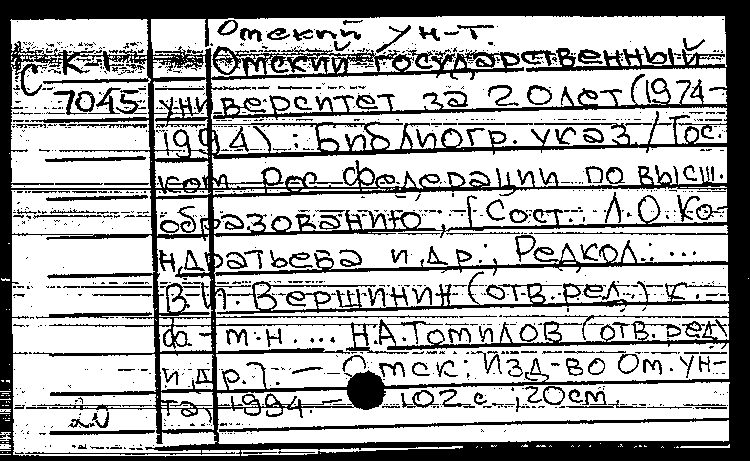 Омский ун-т.
С К-1 Омский государственный
7045 университет за 20 лет (1974-
1994) : Библиогр. указ. / Гос.
ком. Рос. Федерации по высш.
образованию ; [Сост.: Л.О. Ко-
ндратьева и др.; Редкол.: ...
В.И. Вершинин (отв. ред.) к.
ф.-м.н. ... Н.А. Томилов (отв. ред)
и др.]. — Омск: Изд-во Ом. ун-
та, 1994. — 102 с. ; 20 см.
20